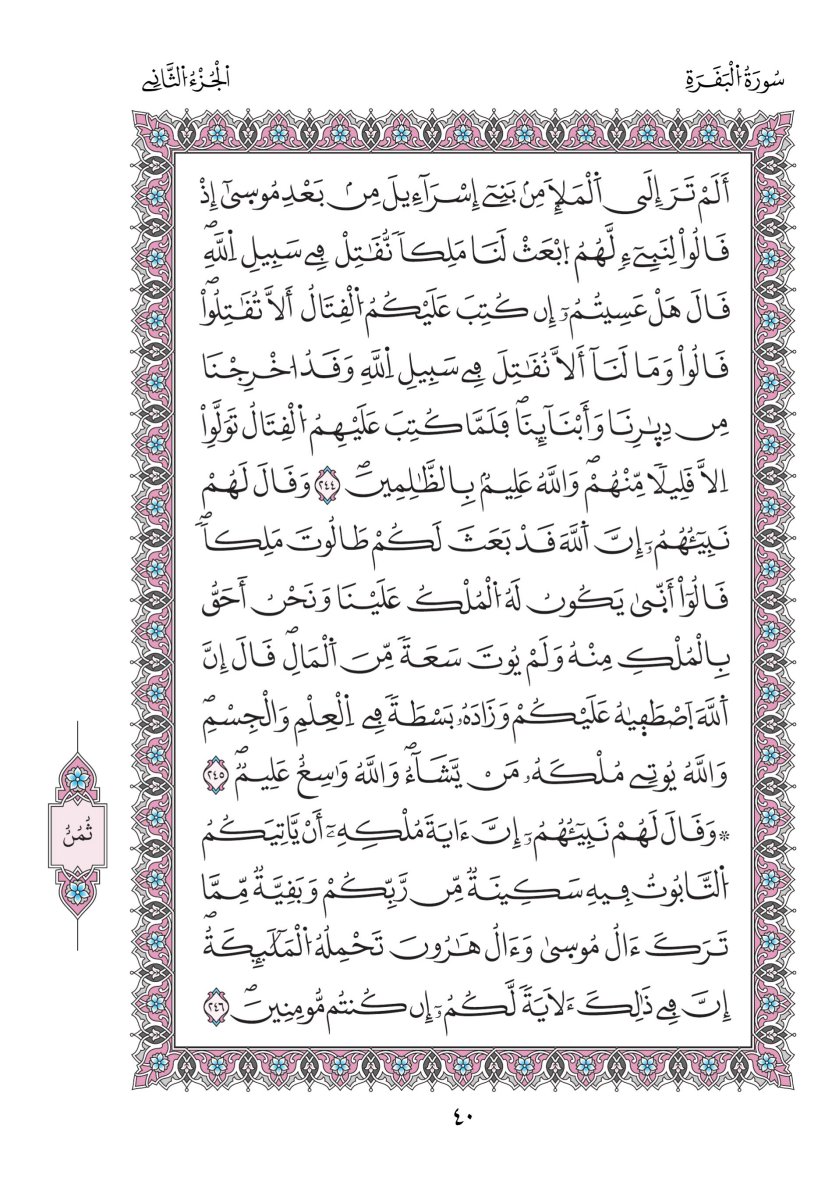 سُورَةُ اُ۬لْبَقَرَةِ
اَ۬لْجُزْءُ اُ۬لثَّانِے
أَلَمْ تَرَ إِلَي اَ۬لْمَلَإِ مِنۢ بَنِےٓ إِسْرَآءِيلَ مِنۢ بَعْدِ مُوس۪ىٰٓ إِذْ
قَالُواْ لِنَبِےٓءٖ لَّهُمُ اُ۪بْعَثْ لَنَا مَلِكاٗ نُّقَٰتِلْ فِے سَبِيلِ اِ۬للَّهِۖ
قَالَ هَلْ عَسِيتُمُۥٓ إِن كُتِبَ عَلَيْكُمُ اُ۬لْقِتَالُ أَلَّا تُقَٰتِلُواْۖ
قَالُواْ وَمَا لَنَآ أَلَّا نُقَٰتِلَ فِے سَبِيلِ اِ۬للَّهِ وَقَدُ ا۟خْرِجْنَا
مِن دِيٰ۪رِنَا وَأَبْنَآئِنَاۖ فَلَمَّا كُتِبَ عَلَيْهِمُ اُ۬لْقِتَالُ تَوَلَّوِاْ
اِلَّا قَلِيلٗا مِّنْهُمْۖ وَاللَّهُ عَلِيمُۢ بِالظَّٰلِمِينَۖ ٢٤٤ وَقَالَ لَهُمْ
نَبِيٓـُٔهُمُۥٓ إِنَّ اَ۬للَّهَ قَدْ بَعَثَ لَكُمْ طَالُوتَ مَلِكاٗۖ
قَالُوٓاْ أَنّ۪ىٰ يَكُونُ لَهُ اُ۬لْمُلْكُ عَلَيْنَا وَنَحْنُ أَحَقُّ
بِالْمُلْكِ مِنْهُ وَلَمْ يُوتَ سَعَةٗ مِّنَ اَ۬لْمَالِۖ قَالَ إِنَّ
اَ۬للَّهَ اَ۪صْطَف۪يٰهُ عَلَيْكُمْ وَزَادَهُۥ بَسْطَةٗ فِے اِ۬لْعِلْمِ وَالْجِسْمِۖ
وَاللَّهُ يُوتِے مُلْكَهُۥ مَنْ يَّشَآءُۖ وَاللَّهُ وَٰسِعٌ عَلِيمٞۖ ٢٤٥
۞وَقَالَ لَهُمْ نَبِيٓـُٔهُمُۥٓ إِنَّ ءَايَةَ مُلْكِهِۦٓ أَنْ يَّاتِيَكُمُ
اُ۬لتَّابُوتُ فِيهِ سَكِينَةٞ مِّن رَّبِّكُمْ وَبَقِيَّةٞ مِّمَّا
تَرَكَ ءَالُ مُوس۪ىٰ وَءَالُ هَٰرُونَ تَحْمِلُهُ اُ۬لْمَلَٰٓئِكَةُۖ
إِنَّ فِے ذَٰلِكَ ءَلَايَةٗ لَّكُمُۥٓ إِن كُنتُم مُّومِنِينَۖ ٢٤٦
ثُمُنُ
٤٠